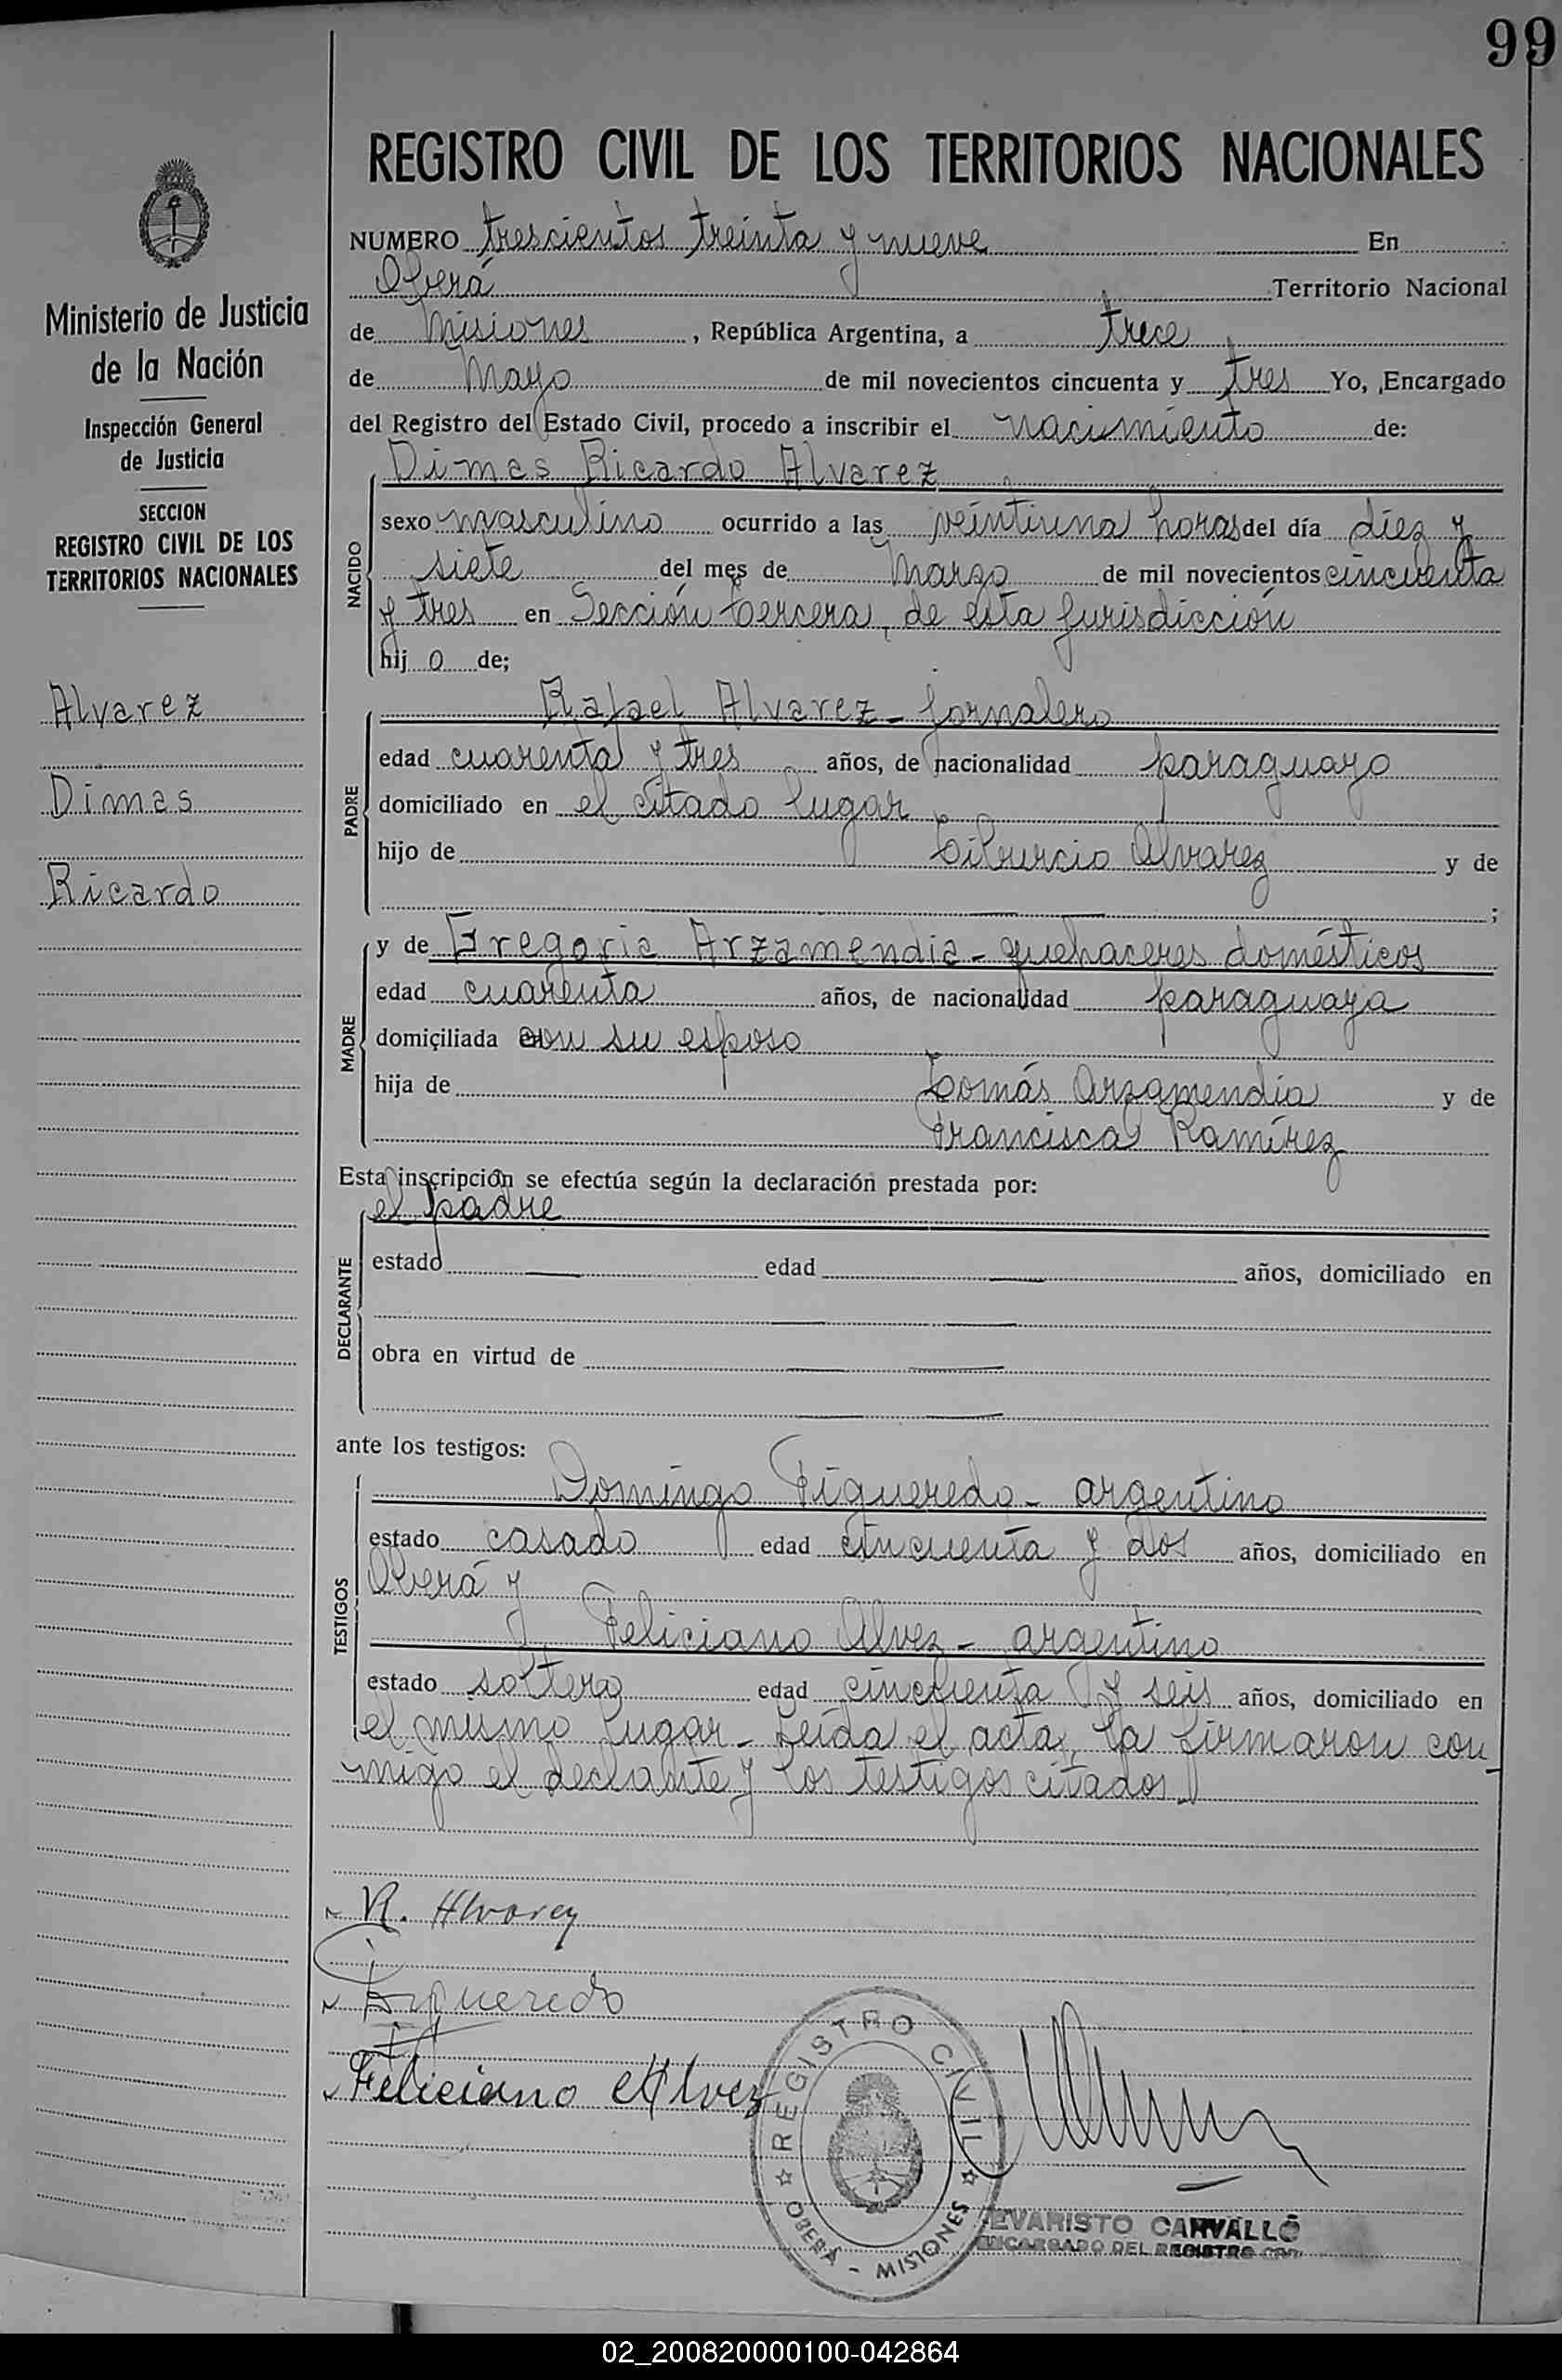 99
REGISTRO CIVIL DE LOS TERRITORIOS NACIONALES
Ministerio de Justicia
de la Nación
Inspección General
de Justicia
SECCION
REGISTRO CIVIL DE LOS
TERRITORIOS NACIONALES
Alvarez
Dimas
Ricardo
NUMERO trescientos treinta y nueve En
Oberá Territorio Nacional
de Misiones, República Argentina, a trece
de Mayo de mil novecientos cincuenta y tres Yo, Encargado
del Registro del Estado Civil, procedo a inscribir el nacimiento de:
NACIDO
Dimas Ricardo Alvarez
sexo masculino ocurrido a las veintiuna horas del día diez y
siete del mes de Marzo de mil novecientos cincuenta
y tres en Sección tercera, de esta jurisdicción
hijo de;
PADRE
Rafael Alvarez - jornalero
edad cuarenta y tres años, de nacionalidad paraguayo
domiciliado en el citado lugar
hijo de Tiburcio Alvarez y de
;
MADRE
y de Gregoria Arzamendia - quehaceres domésticos
edad cuarenta años, de nacionalidad paraguaya
domiciliada con su esposo
hija de Tomás Arzamendia y de
Francisca Ramírez
Esta inscripción se efectúa según la declaración prestada por:
DECLARANTE
el padre
estado edad años, domiciliado en
obra en virtud de
ante los testigos:
TESTIGOS
Domingo Figueredo - argentino
estado casado edad cincuenta y dos años, domiciliado en
Oberá y
Feliciano Alvez - argentino
estado soltero edad cincuenta y seis años, domiciliado en
el mismo lugar - Leída el acta, la firmaron con
migo el declante y los testigos citados.
R. Alvarez
Figueredo
Feliciano Alvez
REGISTRO CIVIL
OBERÁ - MISIONES
EVARISTO CARVALLO
ENCARGADO DEL REGISTRO
02_200820000100-042864